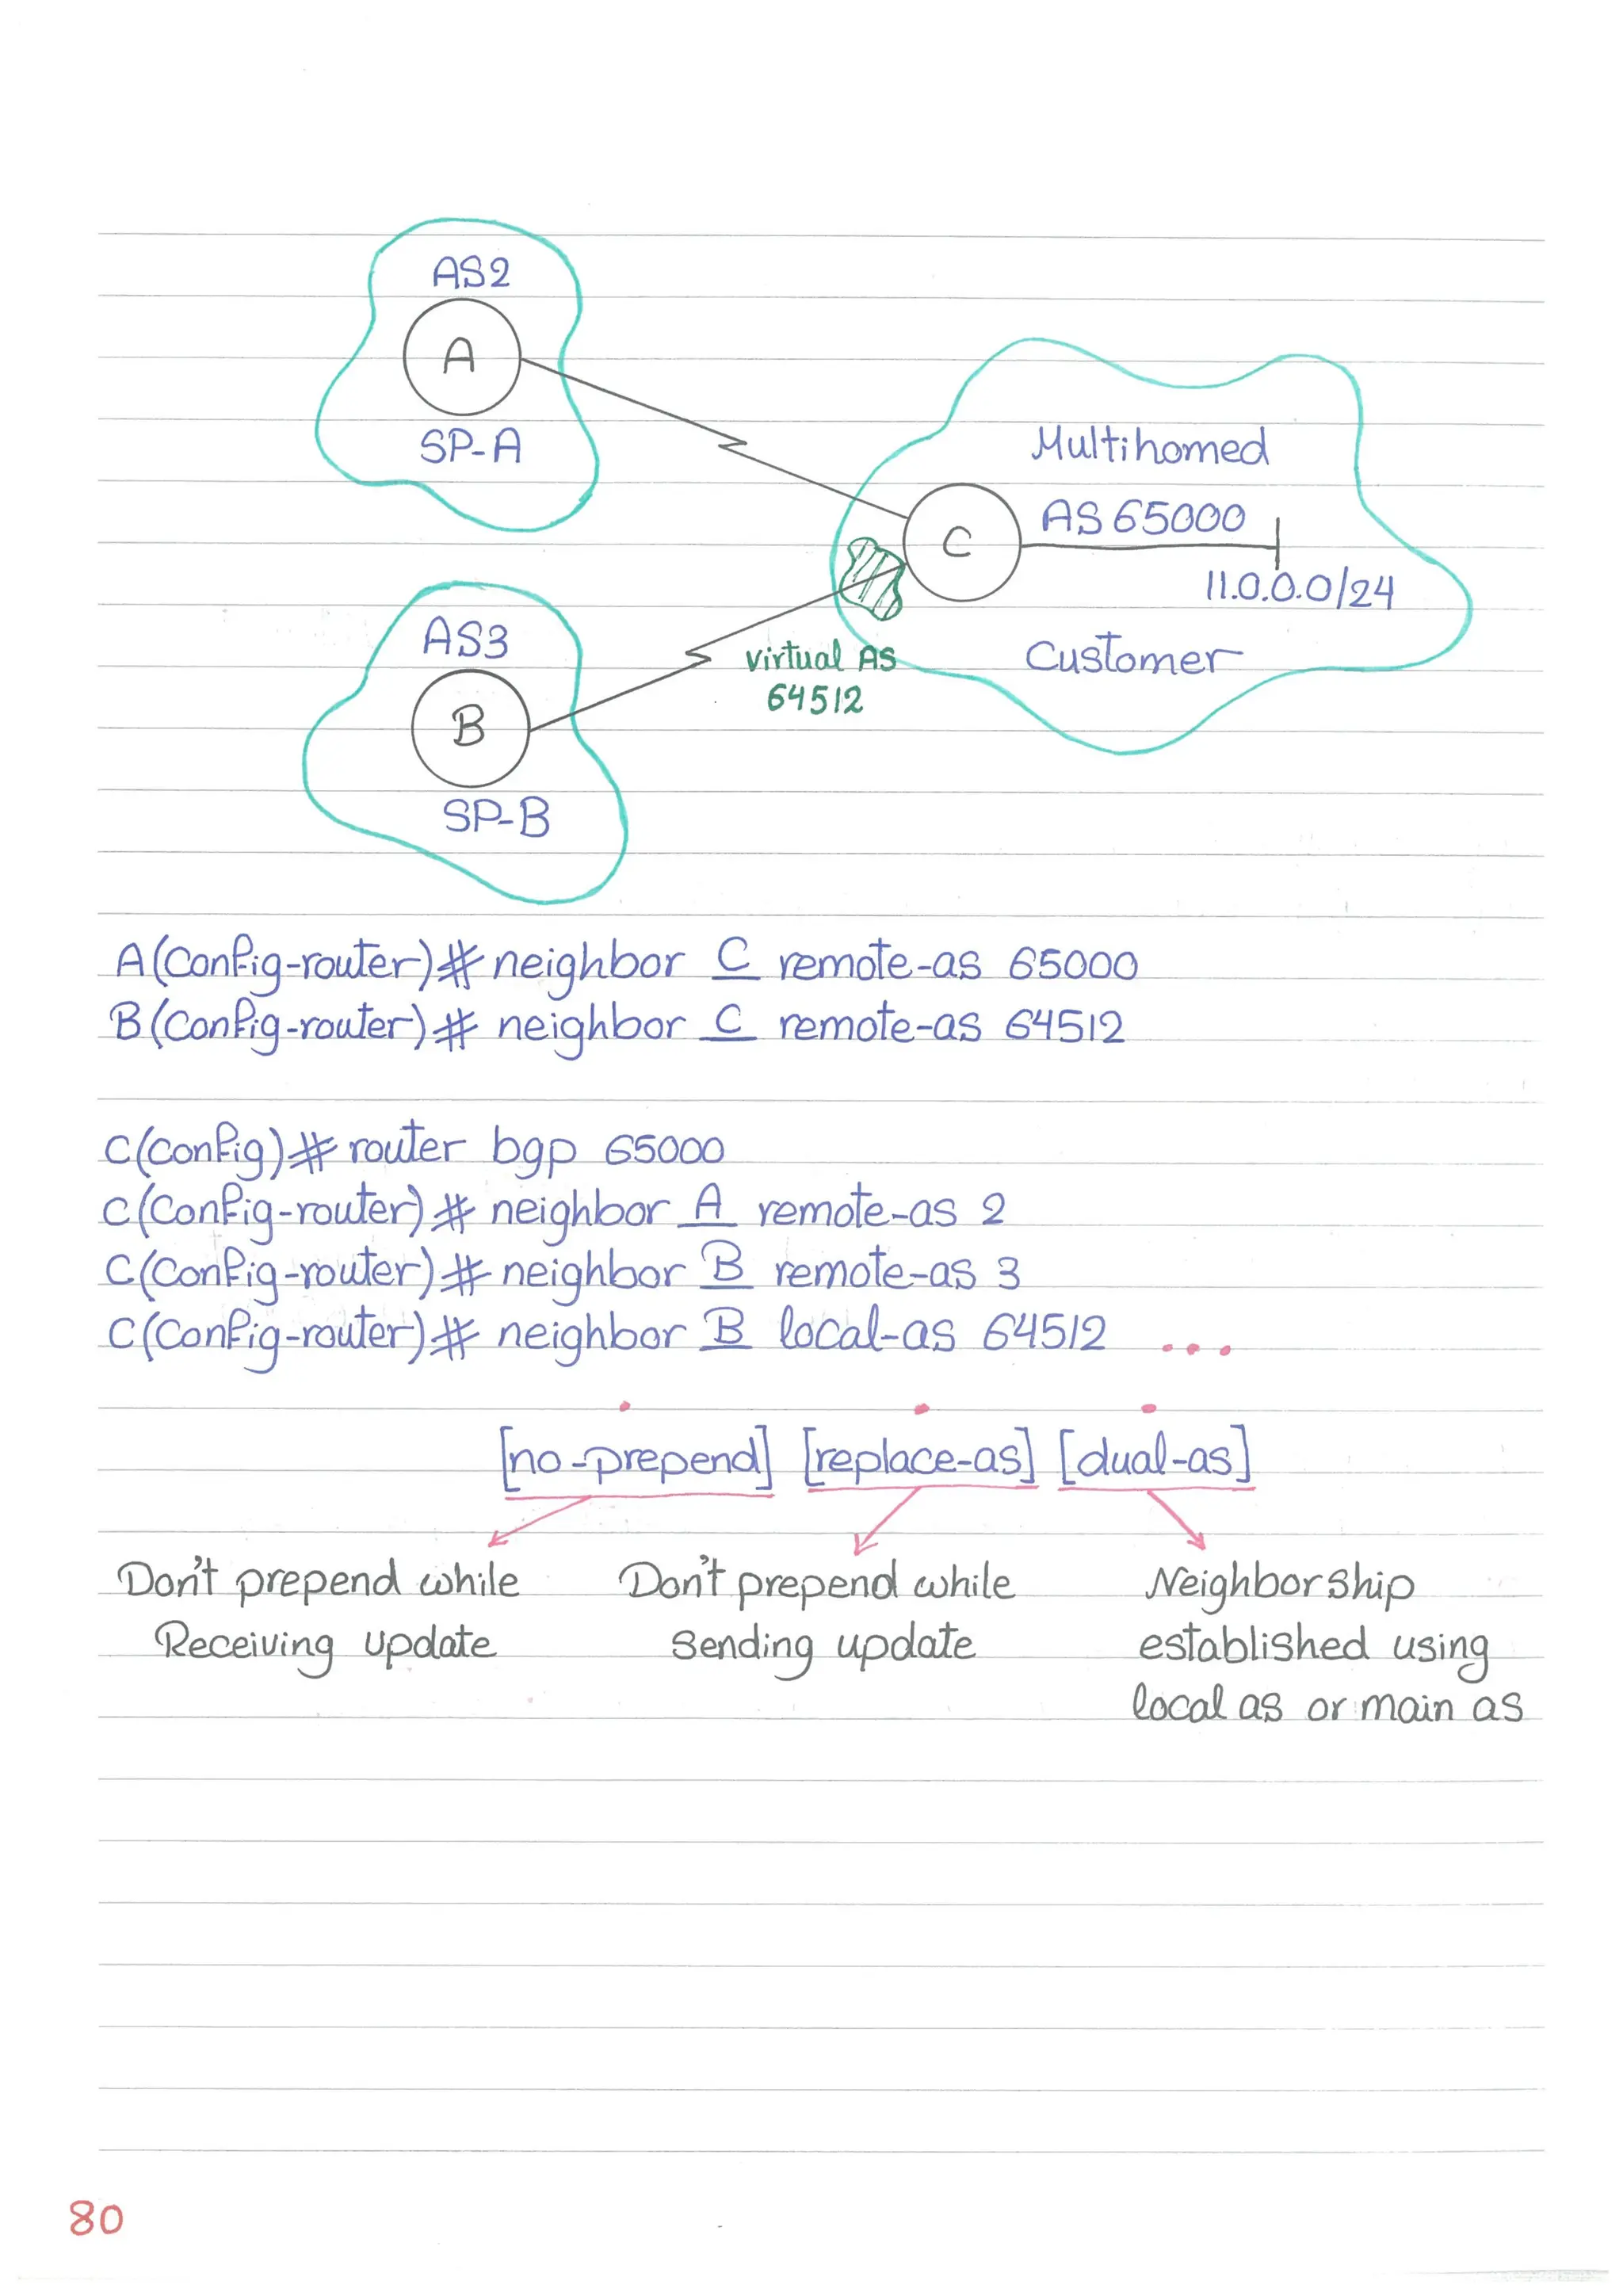 AS2
A
SP-A
Multihomed
AS 65000
C
11.0.0.0/24
AS3
virtual AS
64512
Customer
B
SP-B
A(config-router)# neighbor C remote-as 65000
B(config-router)# neighbor C remote-as 64512
C(config)# router bgp 65000
C(config-router)# neighbor A remote-as 2
C(config-router)# neighbor B remote-as 3
C(config-router)# neighbor B local-as 64512 ...
[no-prepend] [replace-as] [dual-as]
Don't prepend while
Receiving update
Don't prepend while
Sending update
Neighborship
established using
local as or main as
80